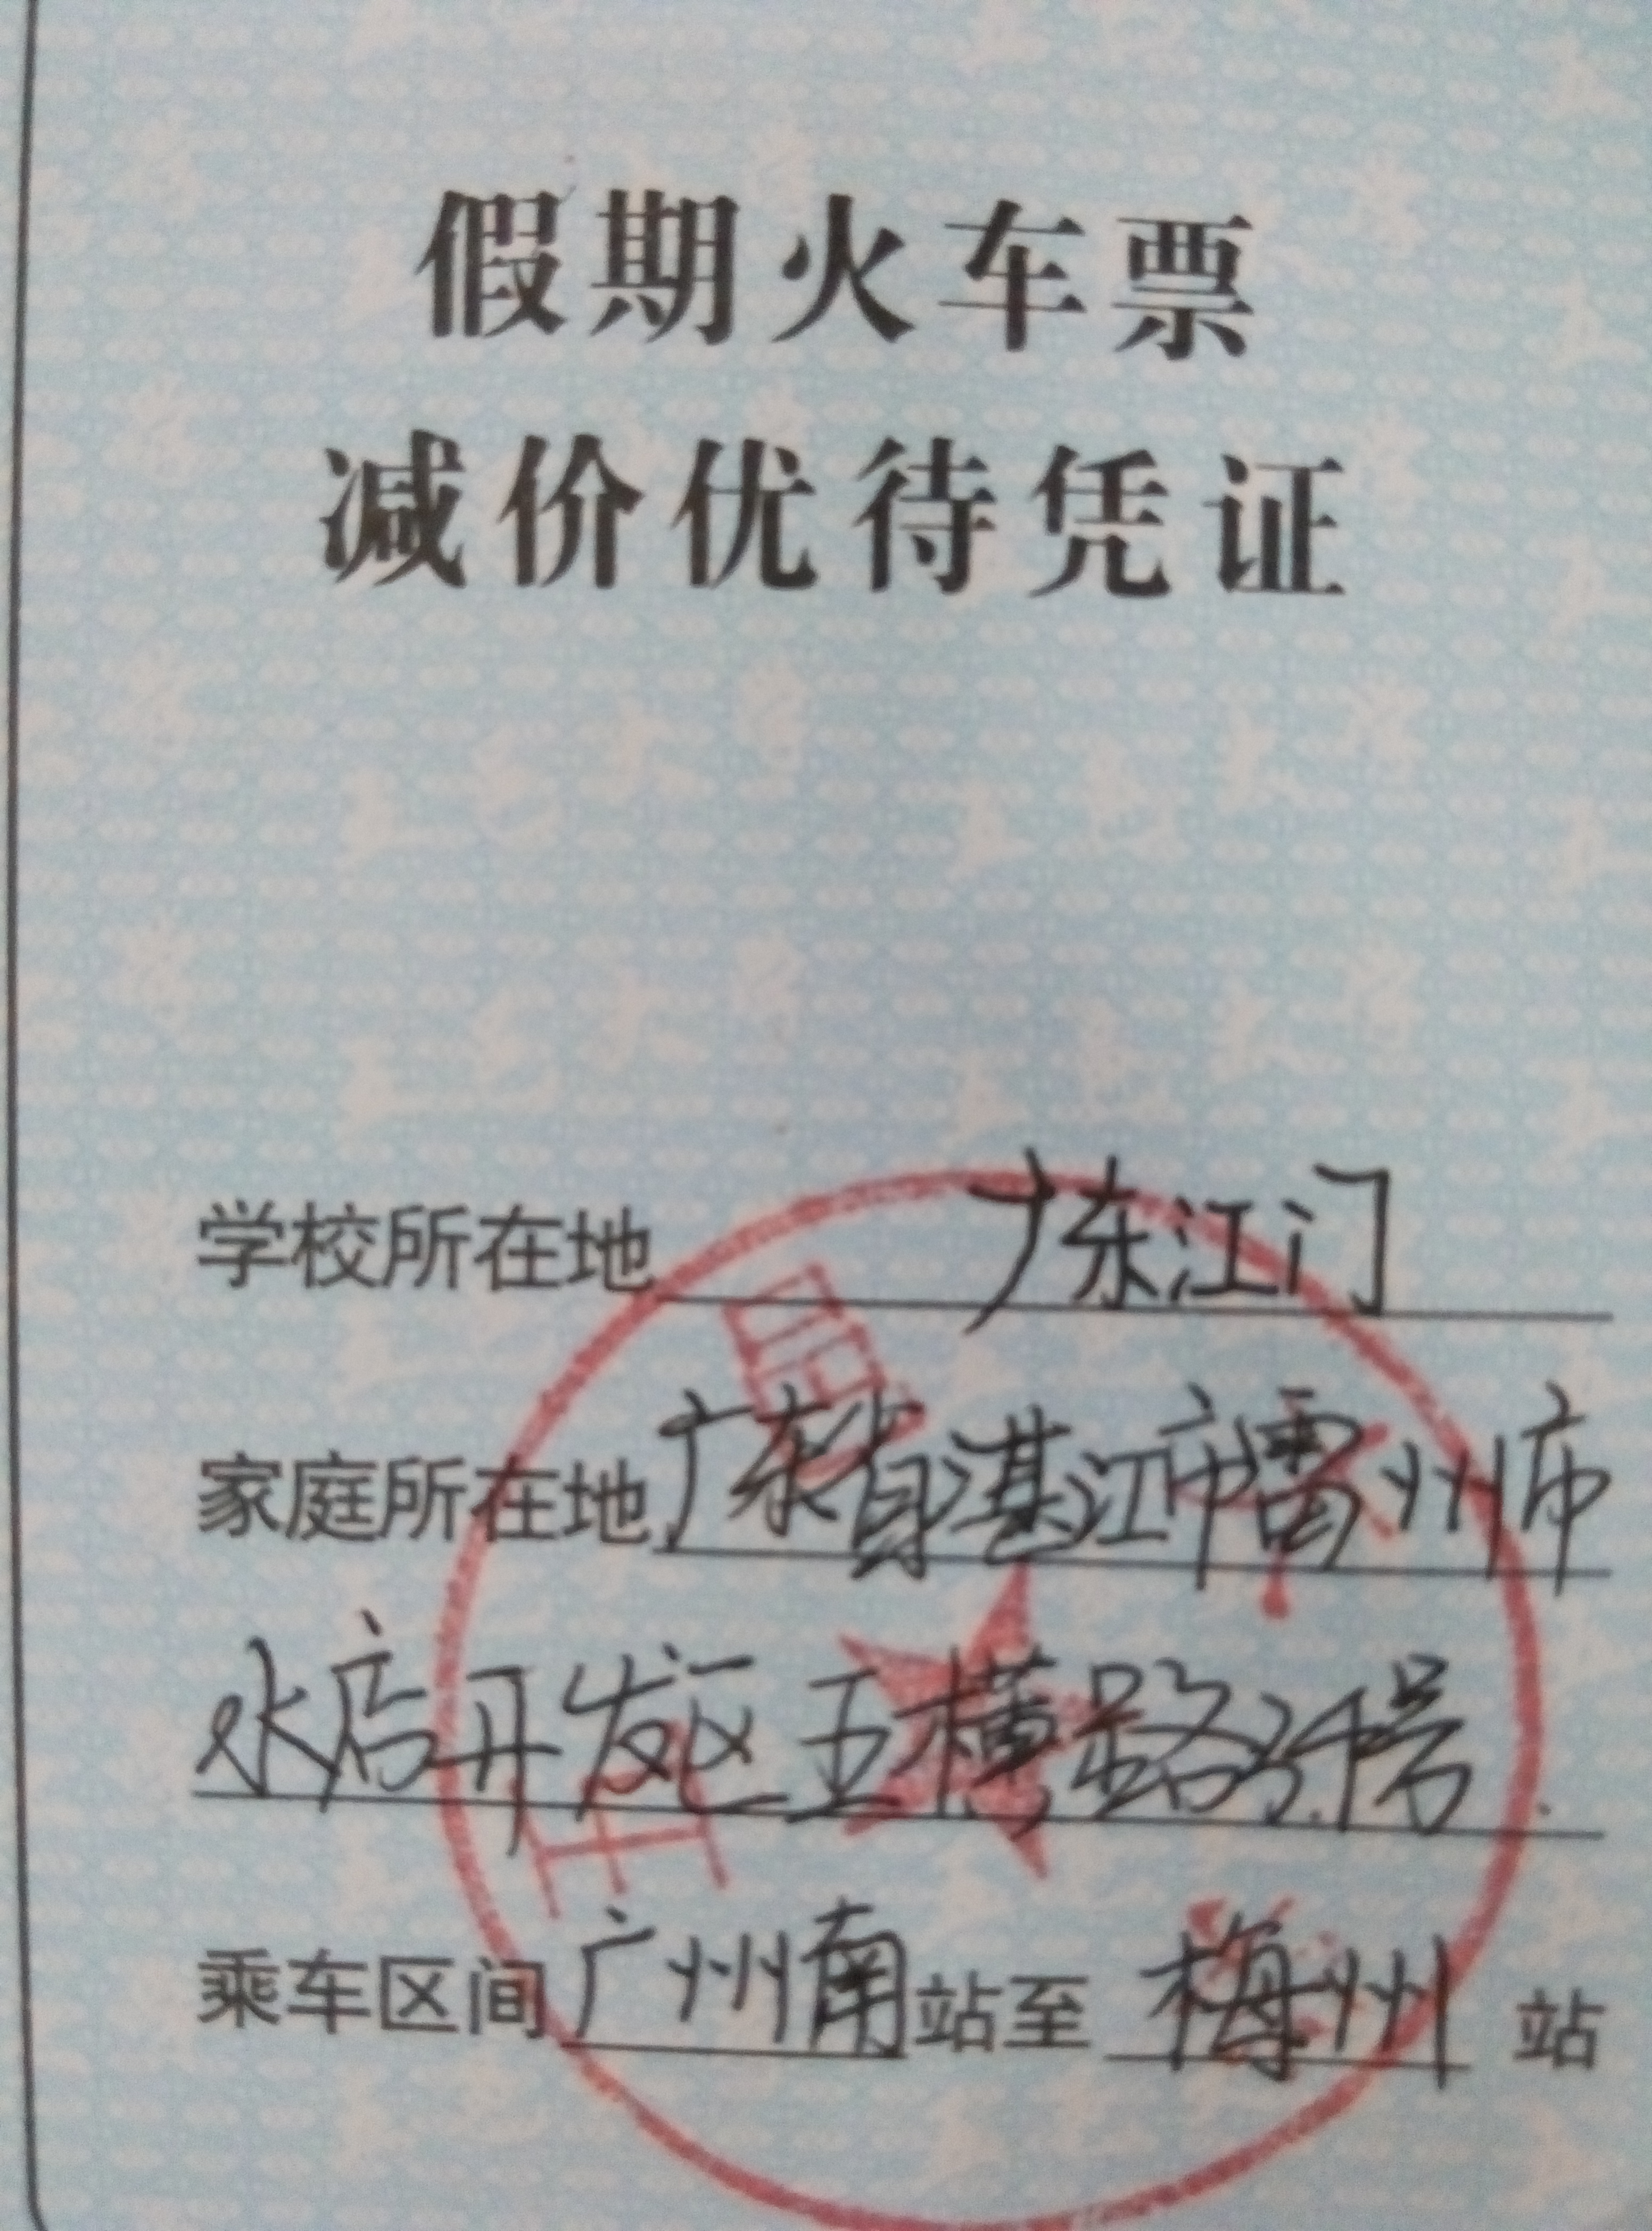 假期火车票
减价优待凭证
学校所在地 广东江门
家庭所在地 广东省湛江市雷州市
水店开发区五横路34号
乘车区间 广州南 站至 梅州 站